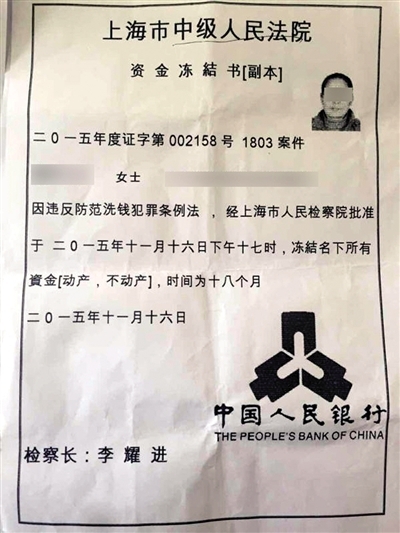 上海市中级人民法院
资金冻結书[副本]
二0一五年度证字第 002158 号 1803 案件
女士
因违反防范洗钱犯罪条例法，经上海市人民检察院批准
于 二0一五年十一月十六日下午十七时，冻結名下所有
資金[动产，不动产]，时间为十八个月
二0一五年十一月十六日
中国人民银行
THE PEOPLE'S BANK OF CHINA
检察长：李 耀 进